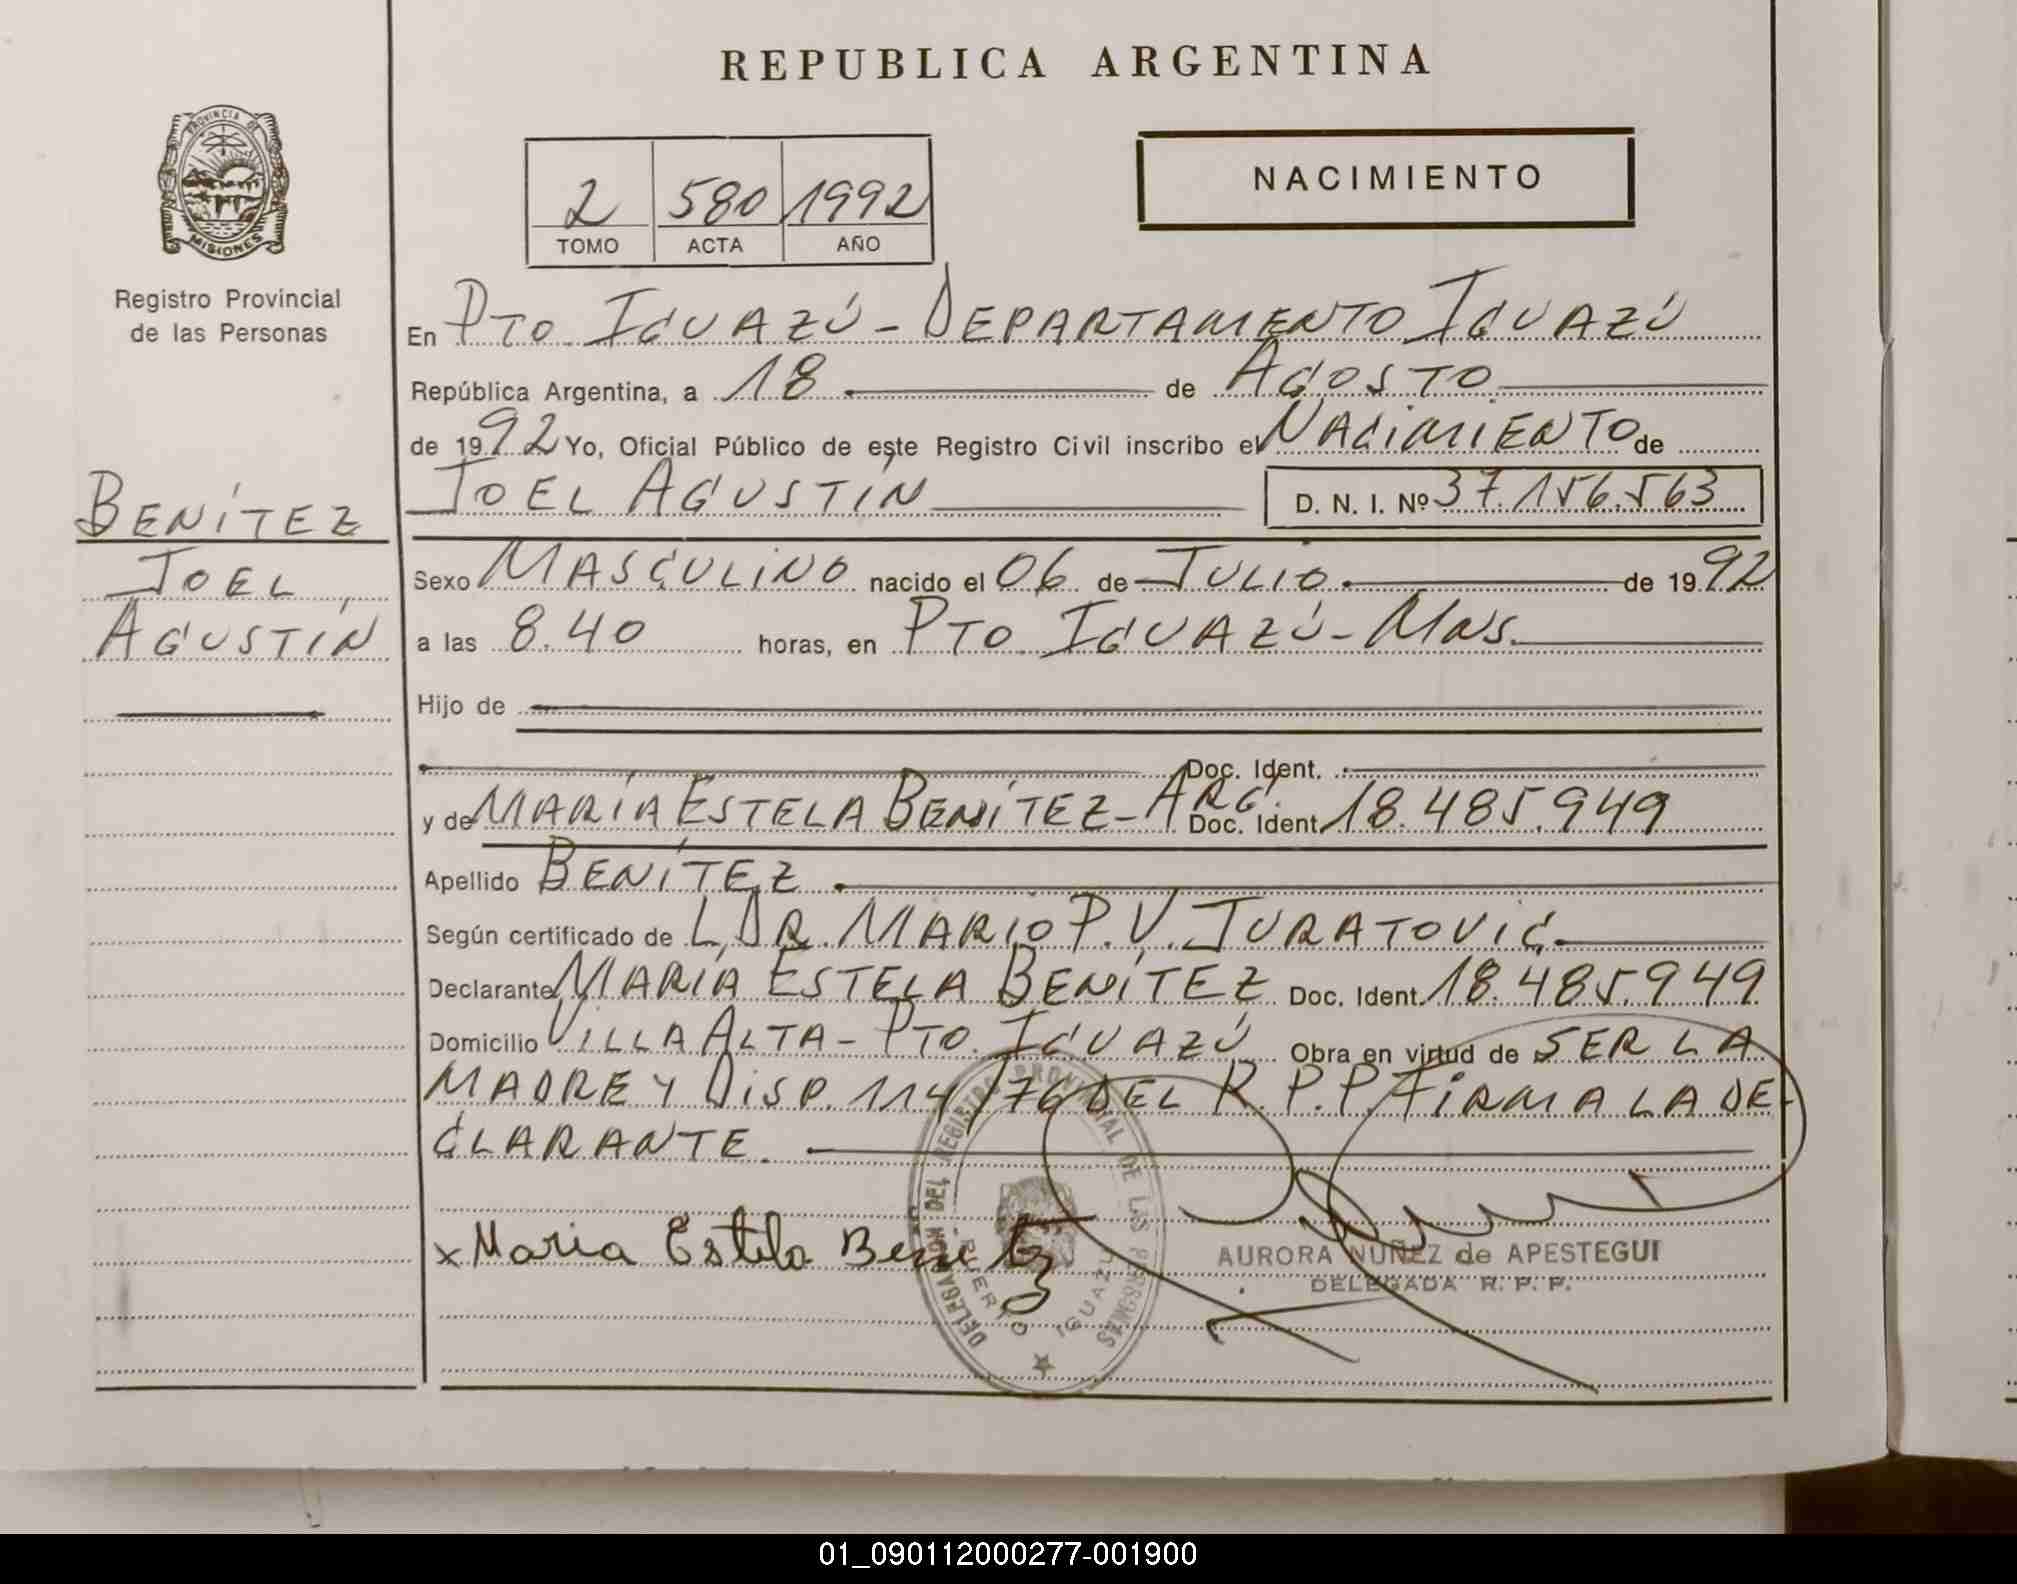 REPUBLICA ARGENTINA
PROVINCIA DE
MISIONES
Registro Provincial
de las Personas
2 580 1992
TOMO ACTA AÑO
NACIMIENTO
En PTO. IGUAZÚ - DEPARTAMENTO IGUAZÚ
República Argentina, a 18 de AGOSTO
de 1992 Yo, Oficial Público de este Registro Civil inscribo el NACIMIENTO de
JOEL AGUSTÍN D. N. I. Nº 37.156.563
BENÍTEZ
JOEL
AGUSTÍN
Sexo MASCULINO nacido el 06 de JULIO de 1992
a las 8.40 horas, en PTO. IGUAZÚ - MNS.
Hijo de
Doc. Ident.
y de MARÍA ESTELA BENÍTEZ - ARG. Doc. Ident. 18.485.949
Apellido BENÍTEZ
Según certificado de L. DR. MARIO P. V. JURATOVIC
Declarante MARÍA ESTELA BENÍTEZ Doc. Ident. 18.485.949
Domicilio VILLA ALTA - PTO. IGUAZÚ Obra en virtud de SER LA
MADRE Y DISP. 114/76 DEL R. P. P. FIRMA LA DE
CLARANTE.
x Maria Estela Benitez
DELEGACION DEL REGISTRO PROVINCIAL DE LAS PERSONAS
PUERTO IGUAZU
AURORA NUÑEZ de APESTEGUI
DELEGADA R. P. P.
01_090112000277-001900